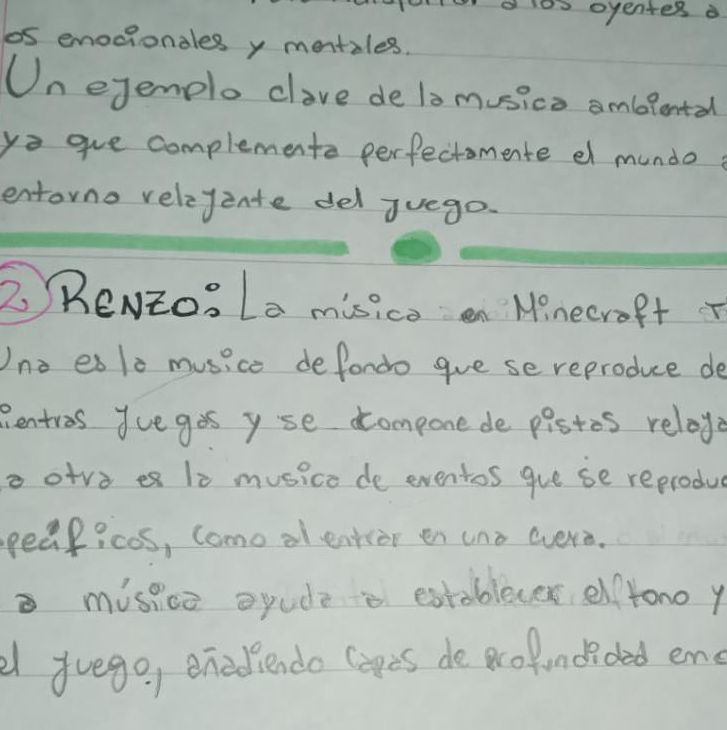 a los oyentes a
os emocionales y mentales.
Un ejemplo clave de la musica ambiental
ya que complementa perfectamente el mundo
entorno relajante del juego.
2. RENZO: La música en Minecraft
Una es la musica de fondo que se reproduce de
ientras juegas y se compone de pistas relaja
a otra es la musica de eventos que se reproduc
pecificos, como al entrar en una cueva.
a música ayuda a establecer el tono y
el juego, añadiendo capas de profundidad emo